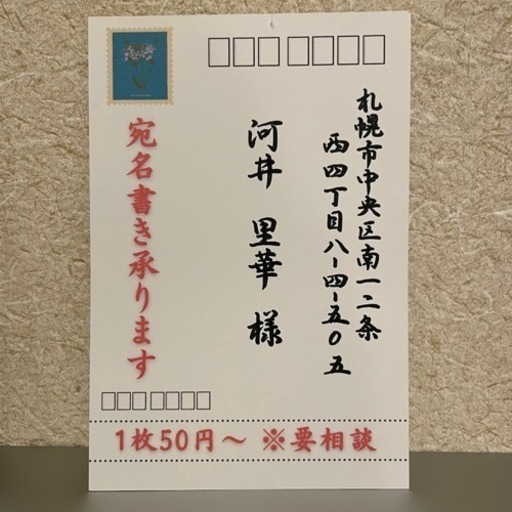 札幌市中央区南一二条
西四丁目八-四-五〇五
河井 里華 様
宛名書き承ります
1枚50円～ ※要相談